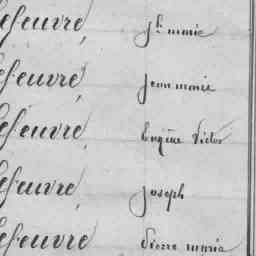 efeuvre, Jh marie
efeuvre, jean marie
efeuvre, Eugène Victor
efeuvre, joseph
efeuvre, Pierre marie